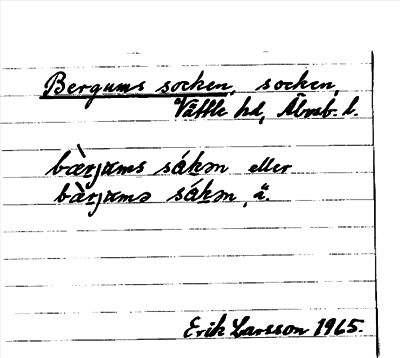 Bergums socken, socken,
Vättle hd, Älvsb. l.
bàrjams såkən eller
bàrjamə såkən, ä.
Erik Larsson 1965.